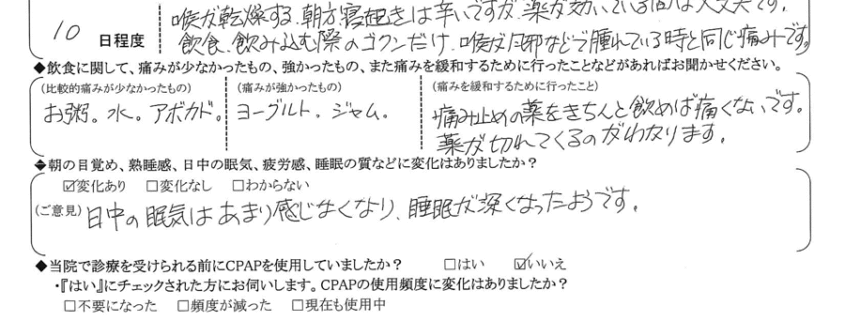 喉が乾燥する。朝方、寝起きは辛いですが、薬が効いている間は大丈夫です。
10 日程度 飲食、飲み込む際のゴクンだけ、喉が風邪などで腫れている時と同じ痛みです。
◆飲食に関して、痛みが少なかったもの、強かったもの、また痛みを緩和するために行ったことなどがあればお聞かせください。
(比較的痛みが少なかったもの) (痛みが強かったもの) (痛みを緩和するために行ったこと)
お粥。水。アボカド。 ヨーグルト、ジャム。 痛み止めの薬をきちんと飲めば痛くないです。
薬が切れてくるのがわかります。
◆朝の目覚め、熟睡感、日中の眠気、疲労感、睡眠の質などに変化はありましたか?
☑変化あり □変化なし □わからない
(ご意見) 日中の眠気はあまり感じなくなり、睡眠が深くなったようです。
◆当院で診療を受けられる前にCPAPを使用していましたか? □はい ☑いいえ
・『はい』にチェックされた方にお伺いします。CPAPの使用頻度に変化はありましたか?
□不要になった □頻度が減った □現在も使用中